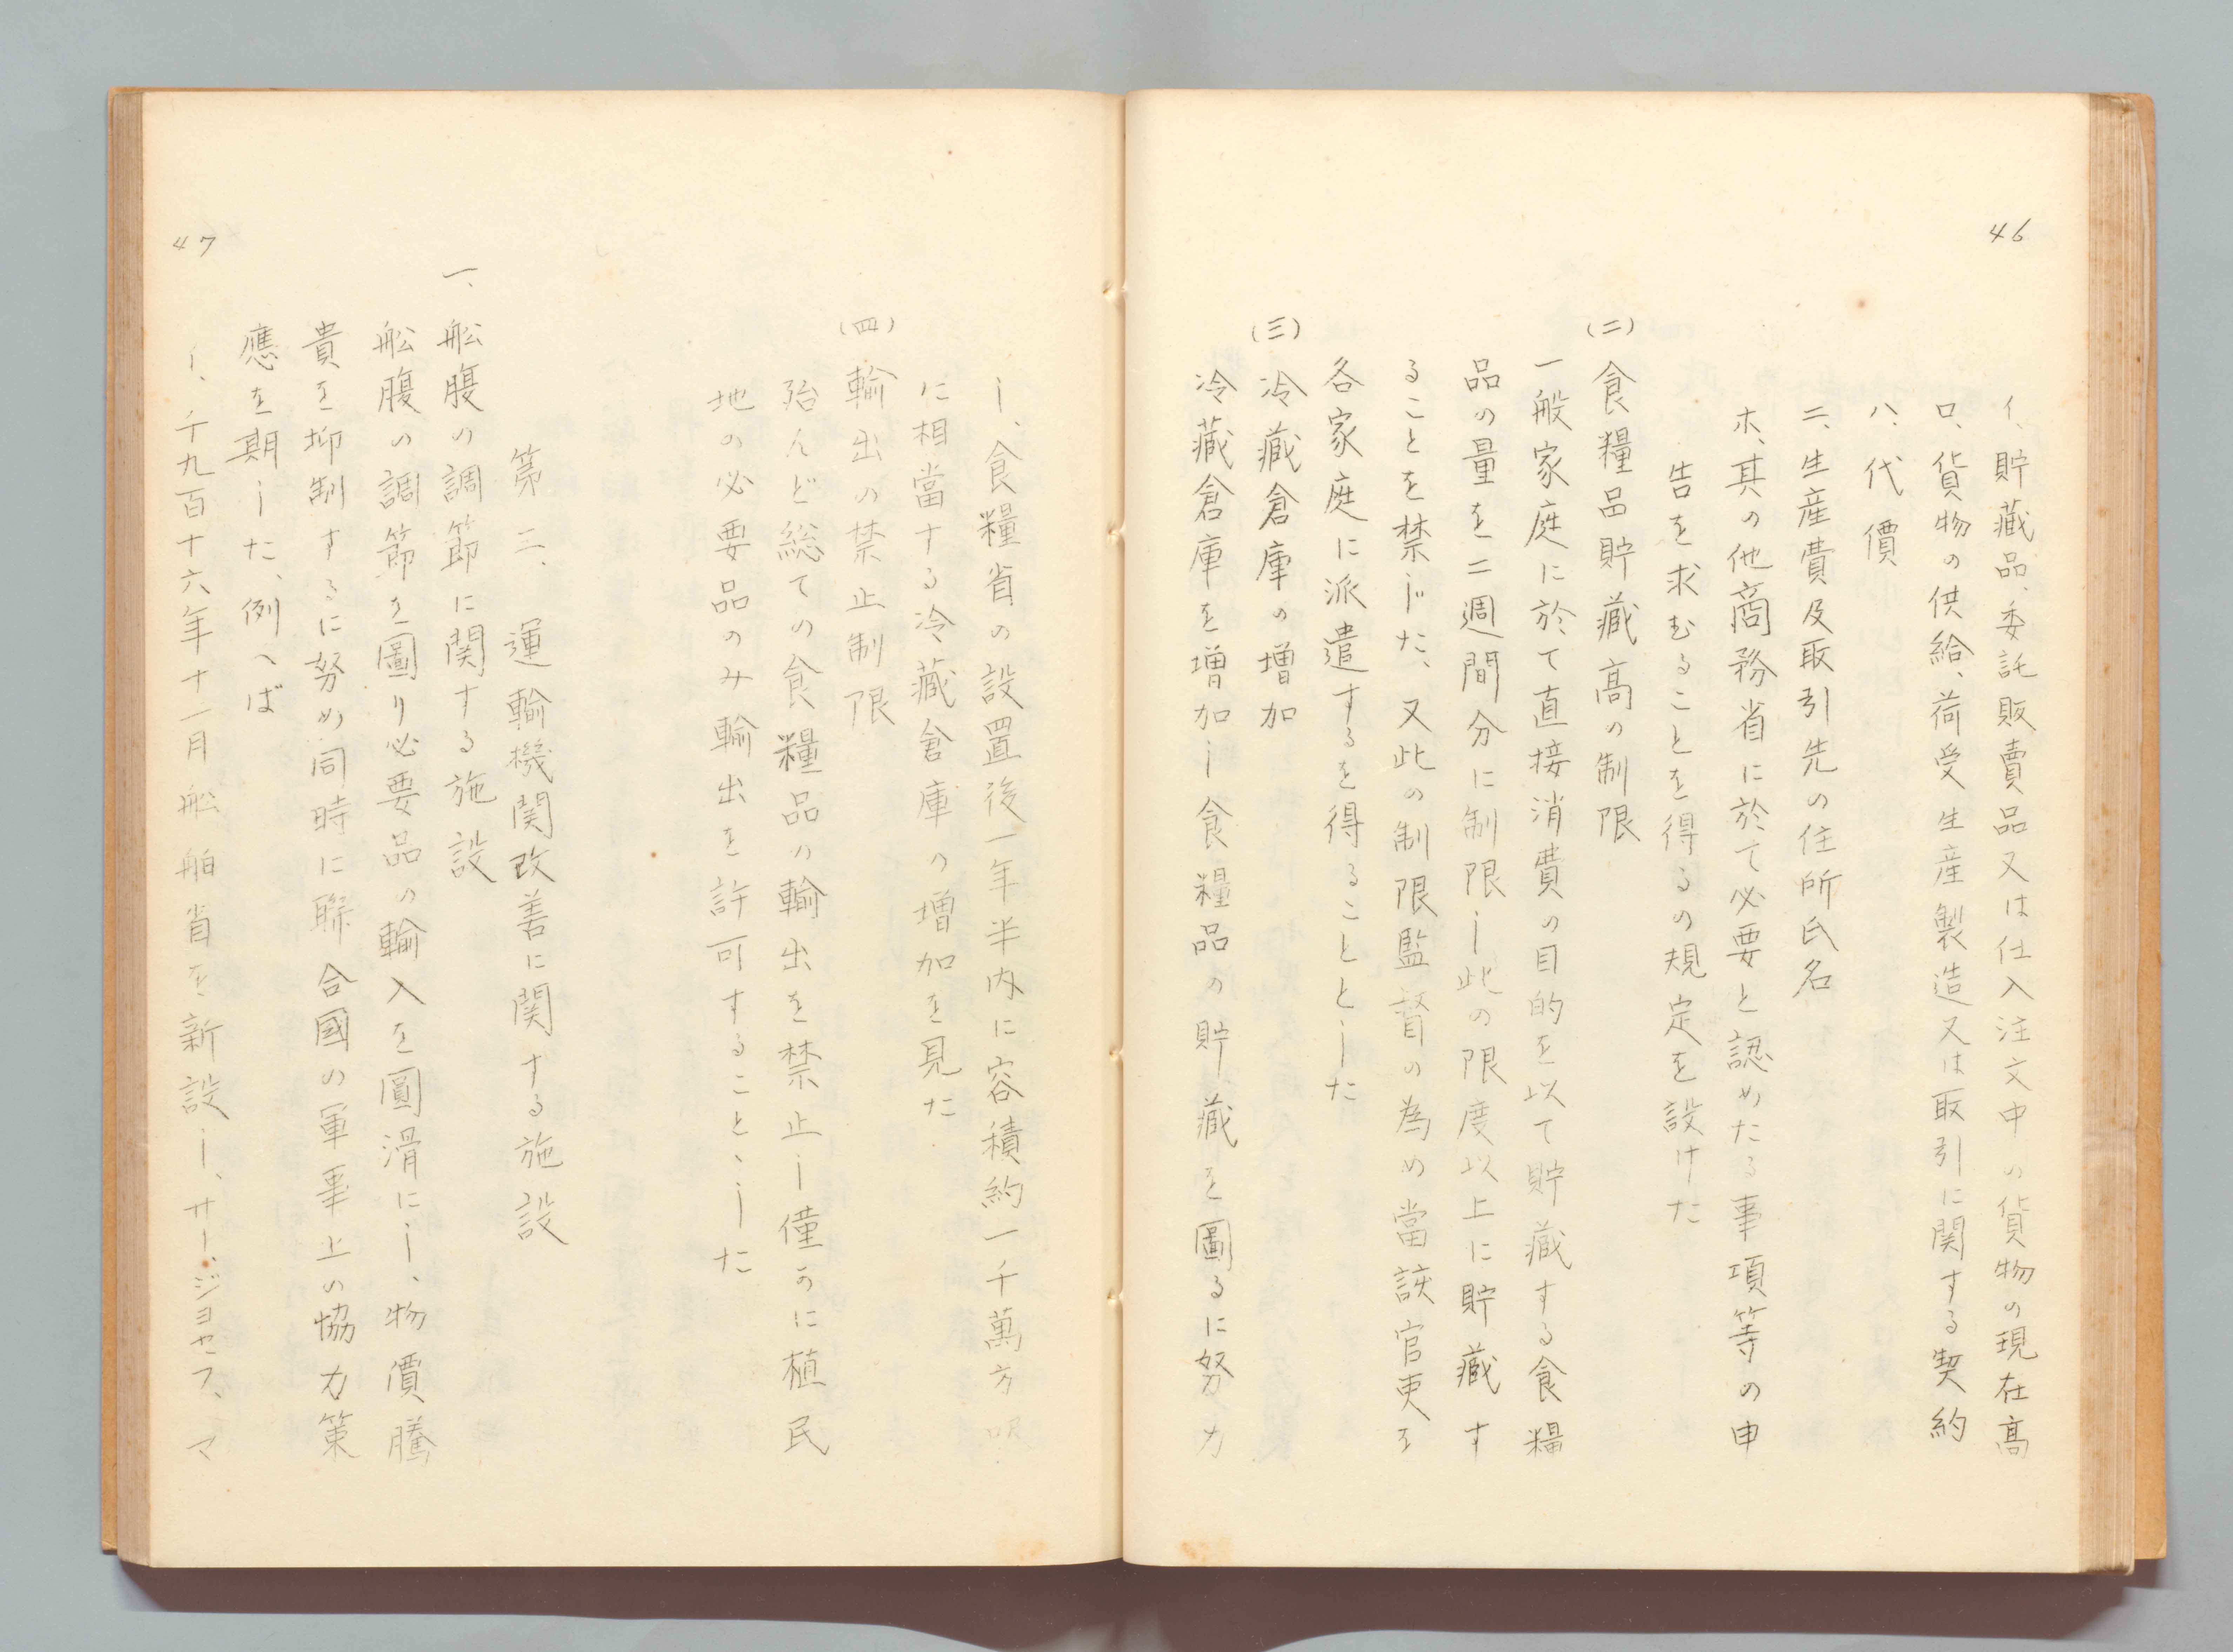 46
イ、貯藏品、委託販賣品又は仕入注文中の貨物の現在高
ロ、貨物の供給、荷受生産製造又は取引に関する契約
ハ、代價
ニ、生産費及取引先の住所氏名
ホ、其の他商務省に於て必要と認めたる事項等の申
告を求むることを得るの規定を設けた
(二)食糧品貯藏高の制限
一般家庭に於て直接消費の目的を以て貯藏する食糧
品の量を二週間分に制限し此の限度以上に貯藏す
ることを禁じた、又此の制限監督の為め當該官吏を
各家庭に派遣するを得ることとした
(三)冷藏倉庫の増加
冷藏倉庫を増加し食糧品の貯藏を圖るに努力
し、食糧省の設置後一年半内に容積約一千萬方呎
に相當する冷藏倉庫の増加を見た
(四)輸出の禁止制限
殆んど総ての食糧品の輸出を禁止し僅かに植民
地の必要品のみ輸出を許可することゝした
第三、運輸機関改善に関する施設
一、舩腹の調節に関する施設
舩腹の調節を圖り必要品の輸入を圓滑にし、物價騰
貴を抑制するに努め同時に聯合國の軍事上の協力策
應を期した、例へば
イ、千九百十六年十一月舩舶省を新設し、サー、ジヨセフ、マ
47